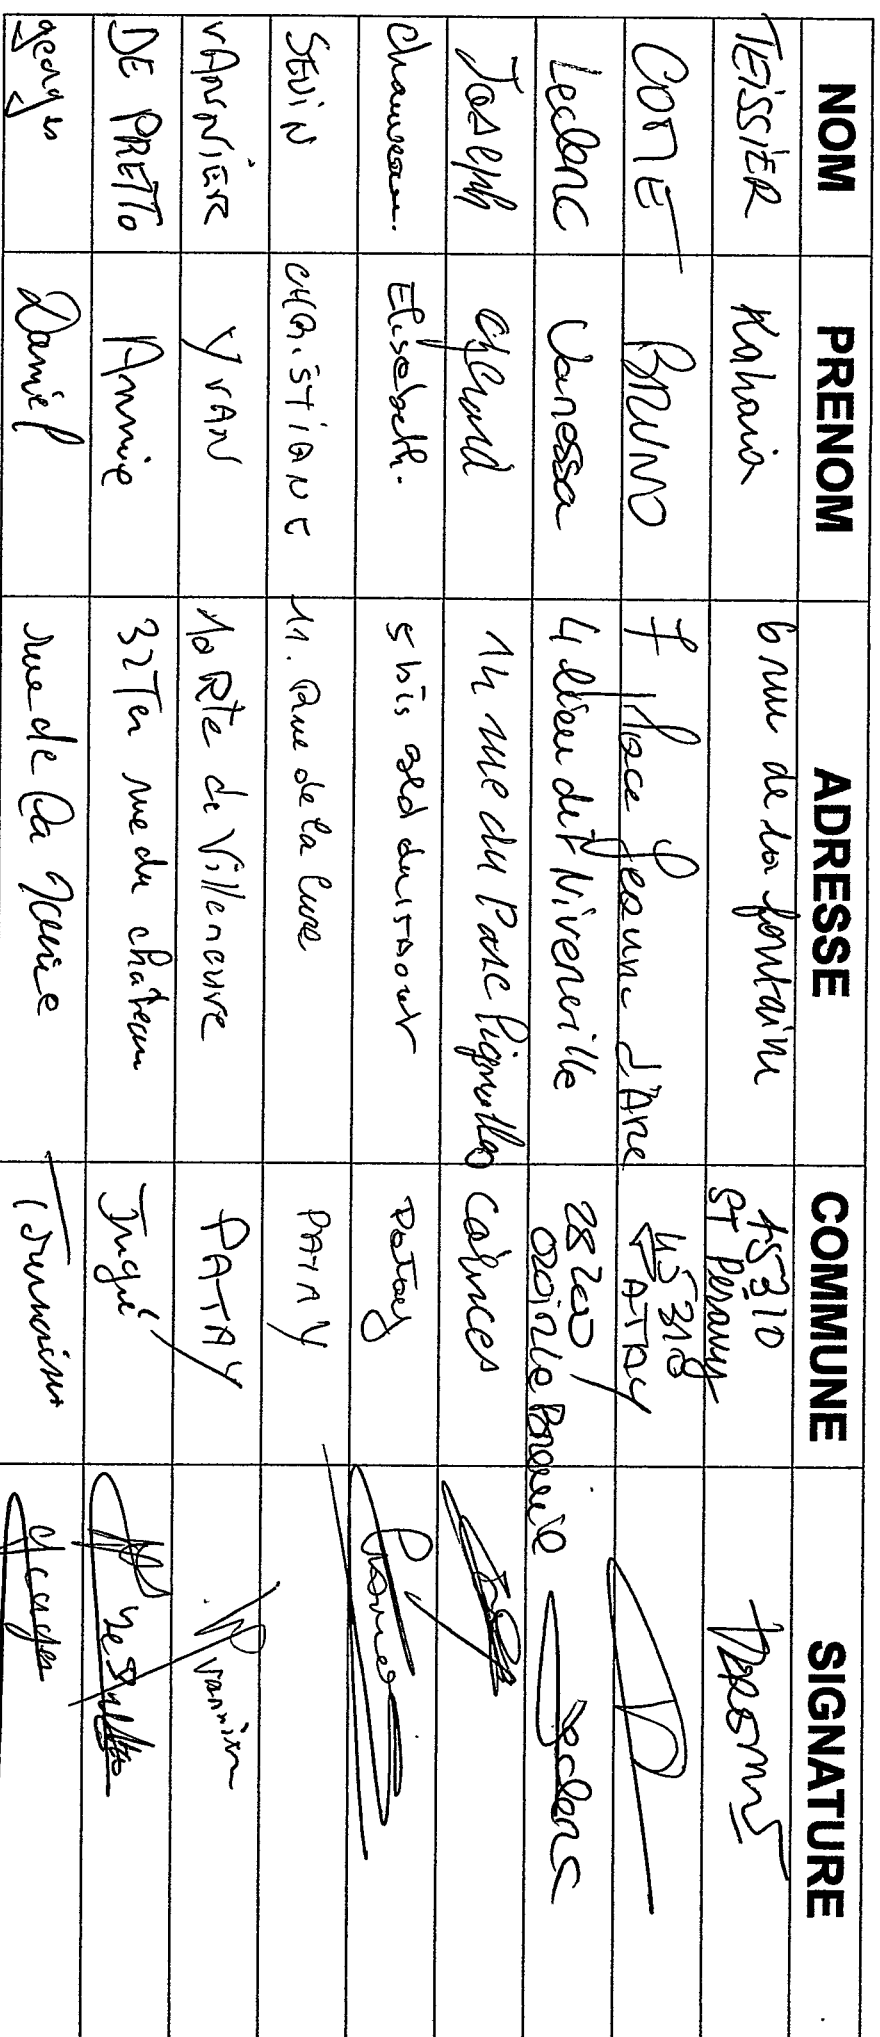 NOM PRENOM ADRESSE COMMUNE SIGNATURE
TEISSIER Kahaia 6 rue de la fontaine 45310 ST Peravy
COME BRUNO 7 Place Jeanne d'Arc 45310 PATAY
Leclerc Vanessa 4 lieu dit Niverville 28200 OZOIR le Breuil Leclerc
Joseph 14 rue du Parc Coinces
Chauveau. Elisabeth. 5 bis Patay
SEVIN CHRISTIANE 11. Rue de la Cure PATAY
VANNIER YVAN 10 Rte de Villeneuve PATAY Vannier
DE PRETTO Annie 32 Ter rue du château Ingré
georges Daniel rue de la Tournoisis georges